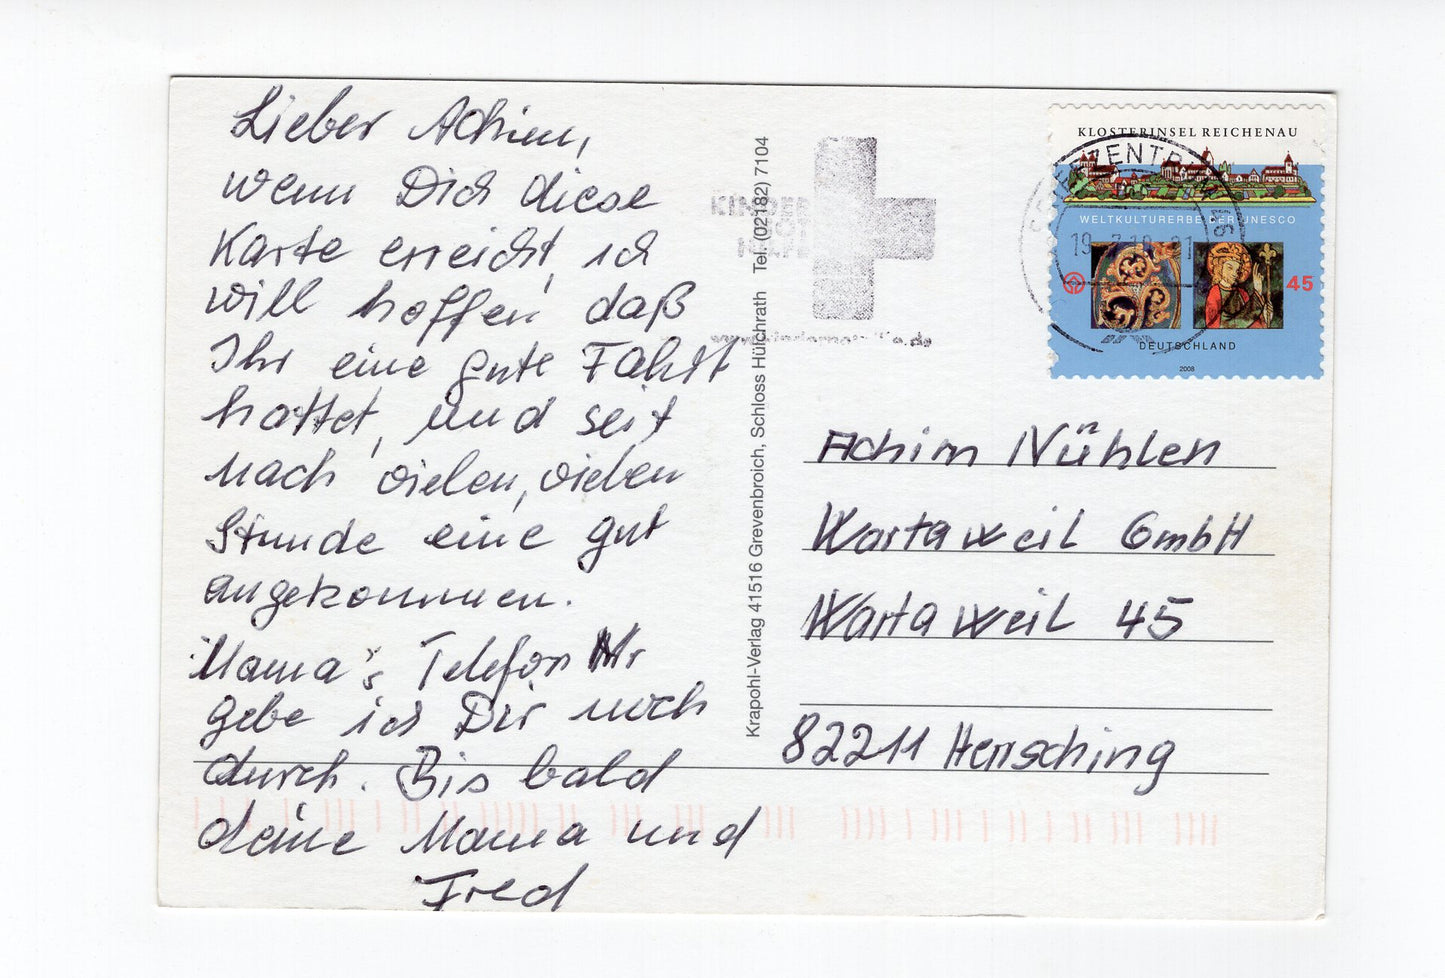 Lieber Achim,
wenn Dich diese
Karte erreicht, ich
will hoffen daß
Ihr eine gute Fahrt
hattet, und seit
nach vielen, vielen
Stunde eine gut
angekommen.
Mama's Telefon Nr
gebe ich Dir noch
durch. Bis bald
deine Mama und
Fred
KINDER
NOT
HILFE
Krapohl-Verlag 41516 Grevenbroich, Schloss Hülchrath Tel. (02182) 7104
KLOSTERINSEL REICHENAU
WELTKULTURERBE DER UNESCO
45
DEUTSCHLAND
2008
BRIEFZENTRUM
Achim Nühlen
Wartaweil GmbH
Wartaweil 45
82211 Herrsching